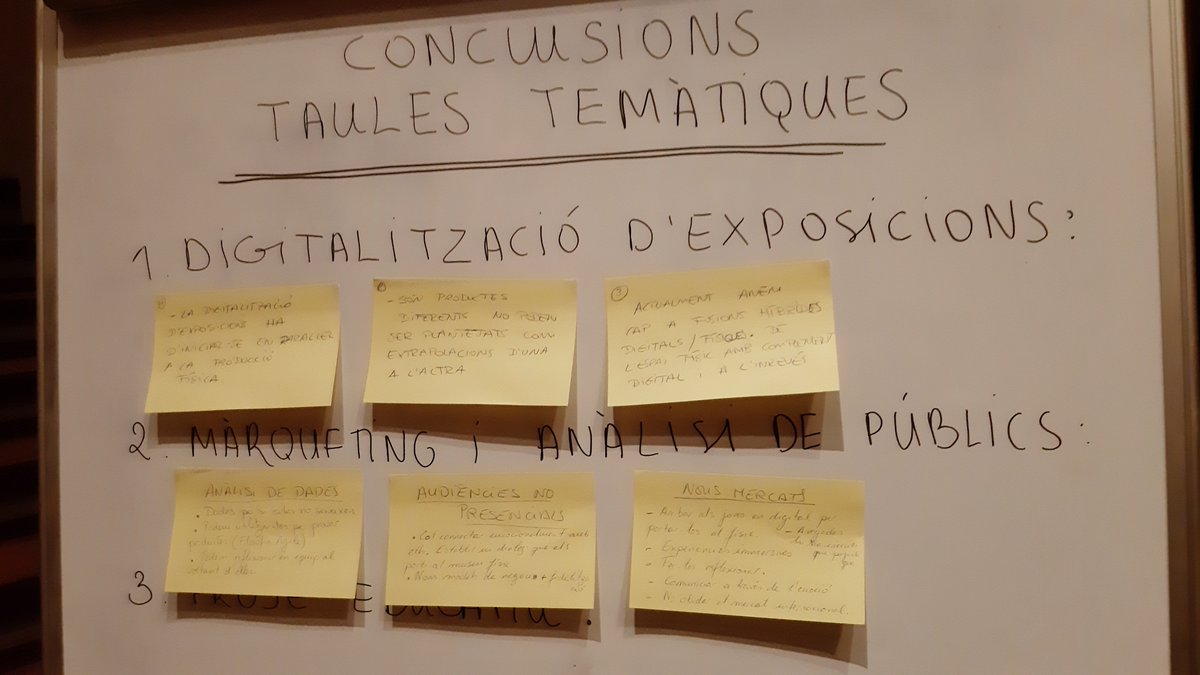 CONCLUSIONS
TAULES TEMÀTIQUES
1. DIGITALITZACIÓ D'EXPOSICIONS:
- LA DIGITALITZACIÓ
D'EXPOSICIONS HA
D'INICIAR-SE EN PARAL·LEL
A LA PRODUCCIÓ
FÍSICA
- SÓN PRODUCTES
DIFERENTS NO PODEN
SER PLANTEJATS COM
EXTRAPOLACIONS D'UNA
A L'ALTRA
3
ACTUALMENT ANEM
CAP A FUSIONS HÍBRIDES
DIGITALS / FÍSIQUES. DE
L'ESPAI FÍSIC AMB COMPLEMENT
DIGITAL I A L'INREVÉS
2. MÀRQUETING I ANÀLISI DE PÚBLICS:
ANÀLISI DE DADES
• Dades per si soles no serveixen
• Podem utilitzar-les per provar
productes (Filosofia Agile)
• Podem reflexionar en equip al
voltant d'elles
AUDIÈNCIES NO
PRESENCIALS
• Cal connectar emocionalment amb
ells. Establir un diàleg que els
porti al museu físic
• Nous models de negoci + fidelitza
ció
NOUS MERCATS
- Arribar als joves en digital per
portar-los al físic.
- Experiències immersives
- Fer-los reflexionar.
- Comunicar a través de l'emoció
- No oblidar el mercat internacional.
3. EDUCATIU: